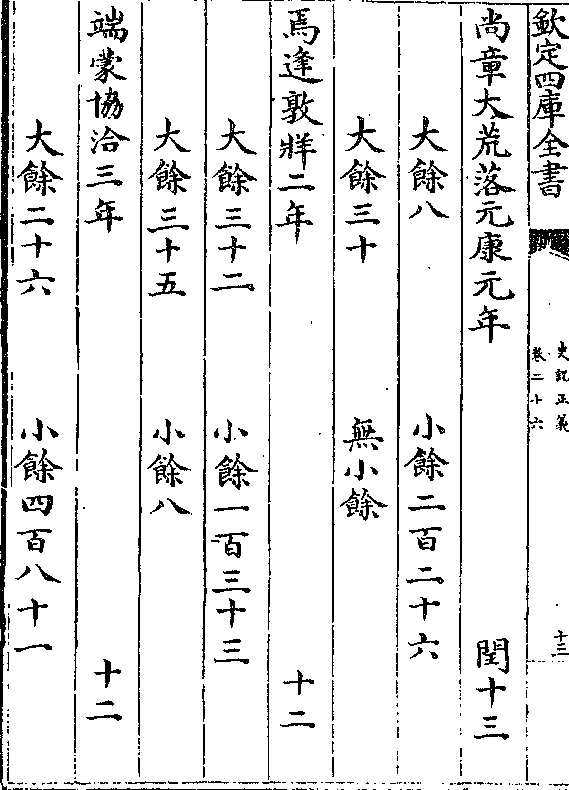 欽定四庫全書
史記正義
卷二十六
十三
尚章大荒落元康元年 閏十三
大餘八 小餘二百二十六
大餘三十 無小餘
焉逢敦牂二年 十二
大餘三十二 小餘一百三十三
大餘三十五 小餘八
端蒙協洽三年 十二
大餘二十六 小餘四百八十一